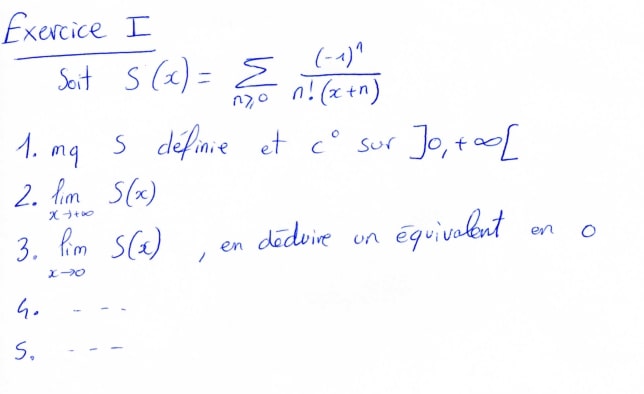 Exercice I
Soit S(x) = ∑_{n⩾0} (-1)^n / n!(x+n)
1. mq S définie et c° sur ]0,+∞[
2. lim_{x→+∞} S(x)
3. lim_{x→0} S(x) , en déduire un équivalent en 0
4. - - -
5. - - -